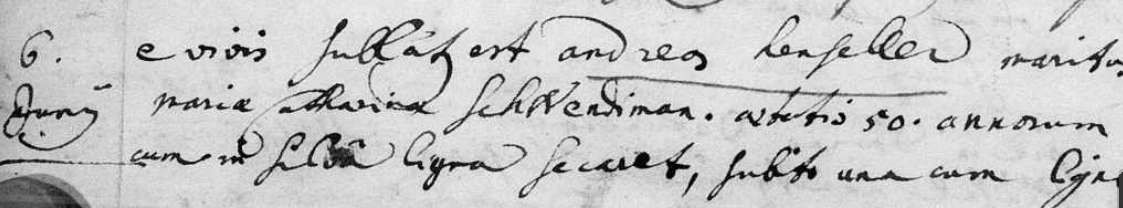 6. e vivis sublat9 est andreas henseller maritus
Junÿ mariæ catharinæ schWendiman. ætatis 50. annorum
cum in silva ligna secaret, subito una cum lign